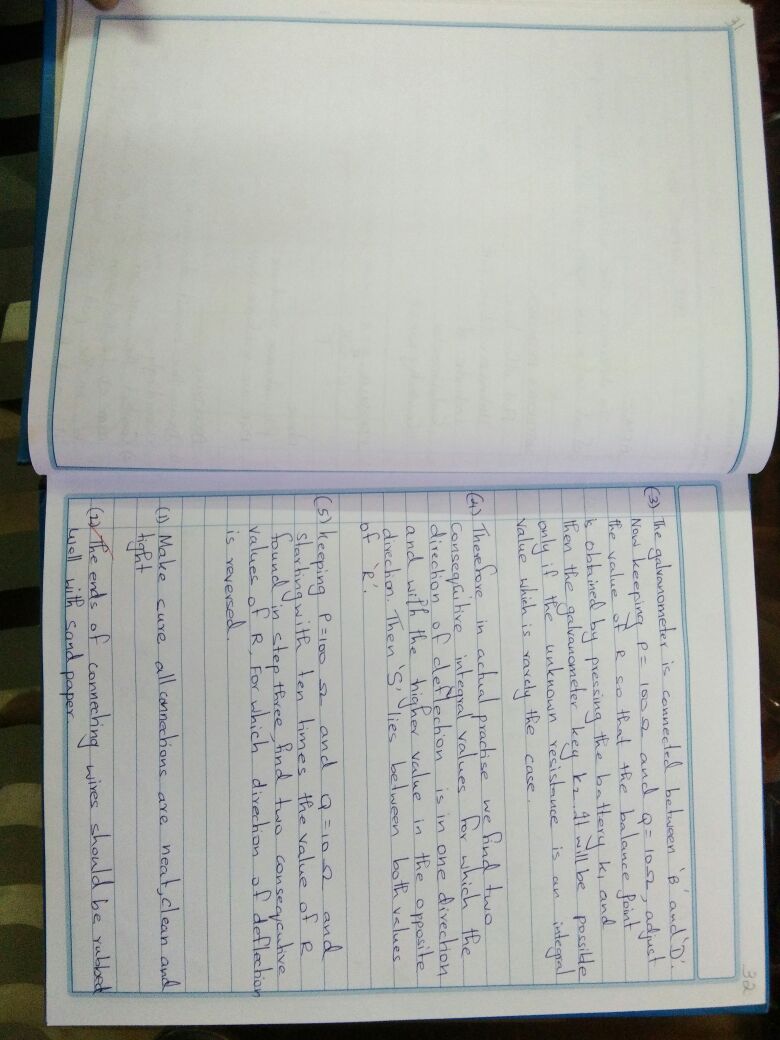 31
32
(3) The galvanometer is connected between 'B' and 'D'.
Now keeping P = 100 Ω and Q = 10 Ω, adjust
the value of R so that the balance point
k obtained by pressing the battery k1 and
then the galvanometer key k2. It will be possible
only if the unknown resistance is an integral
value which is rarely the case.
(4) Therefore in actual practise we find two
consequitive integral values for which the
direction of deflection is in one direction
and with the higher value in the opposite
direction. Then 'S' lies between both values
of 'R'.
(5) keeping P = 100 Ω and Q = 10 Ω and
starting with ten times the value of R
found in step three, find two consequitive
values of R, for which direction of deflection
is reversed.
(1) Make sure all connections are neat, clean and
tight
(2) The ends of connecting wires should be rubbed
well with sand paper